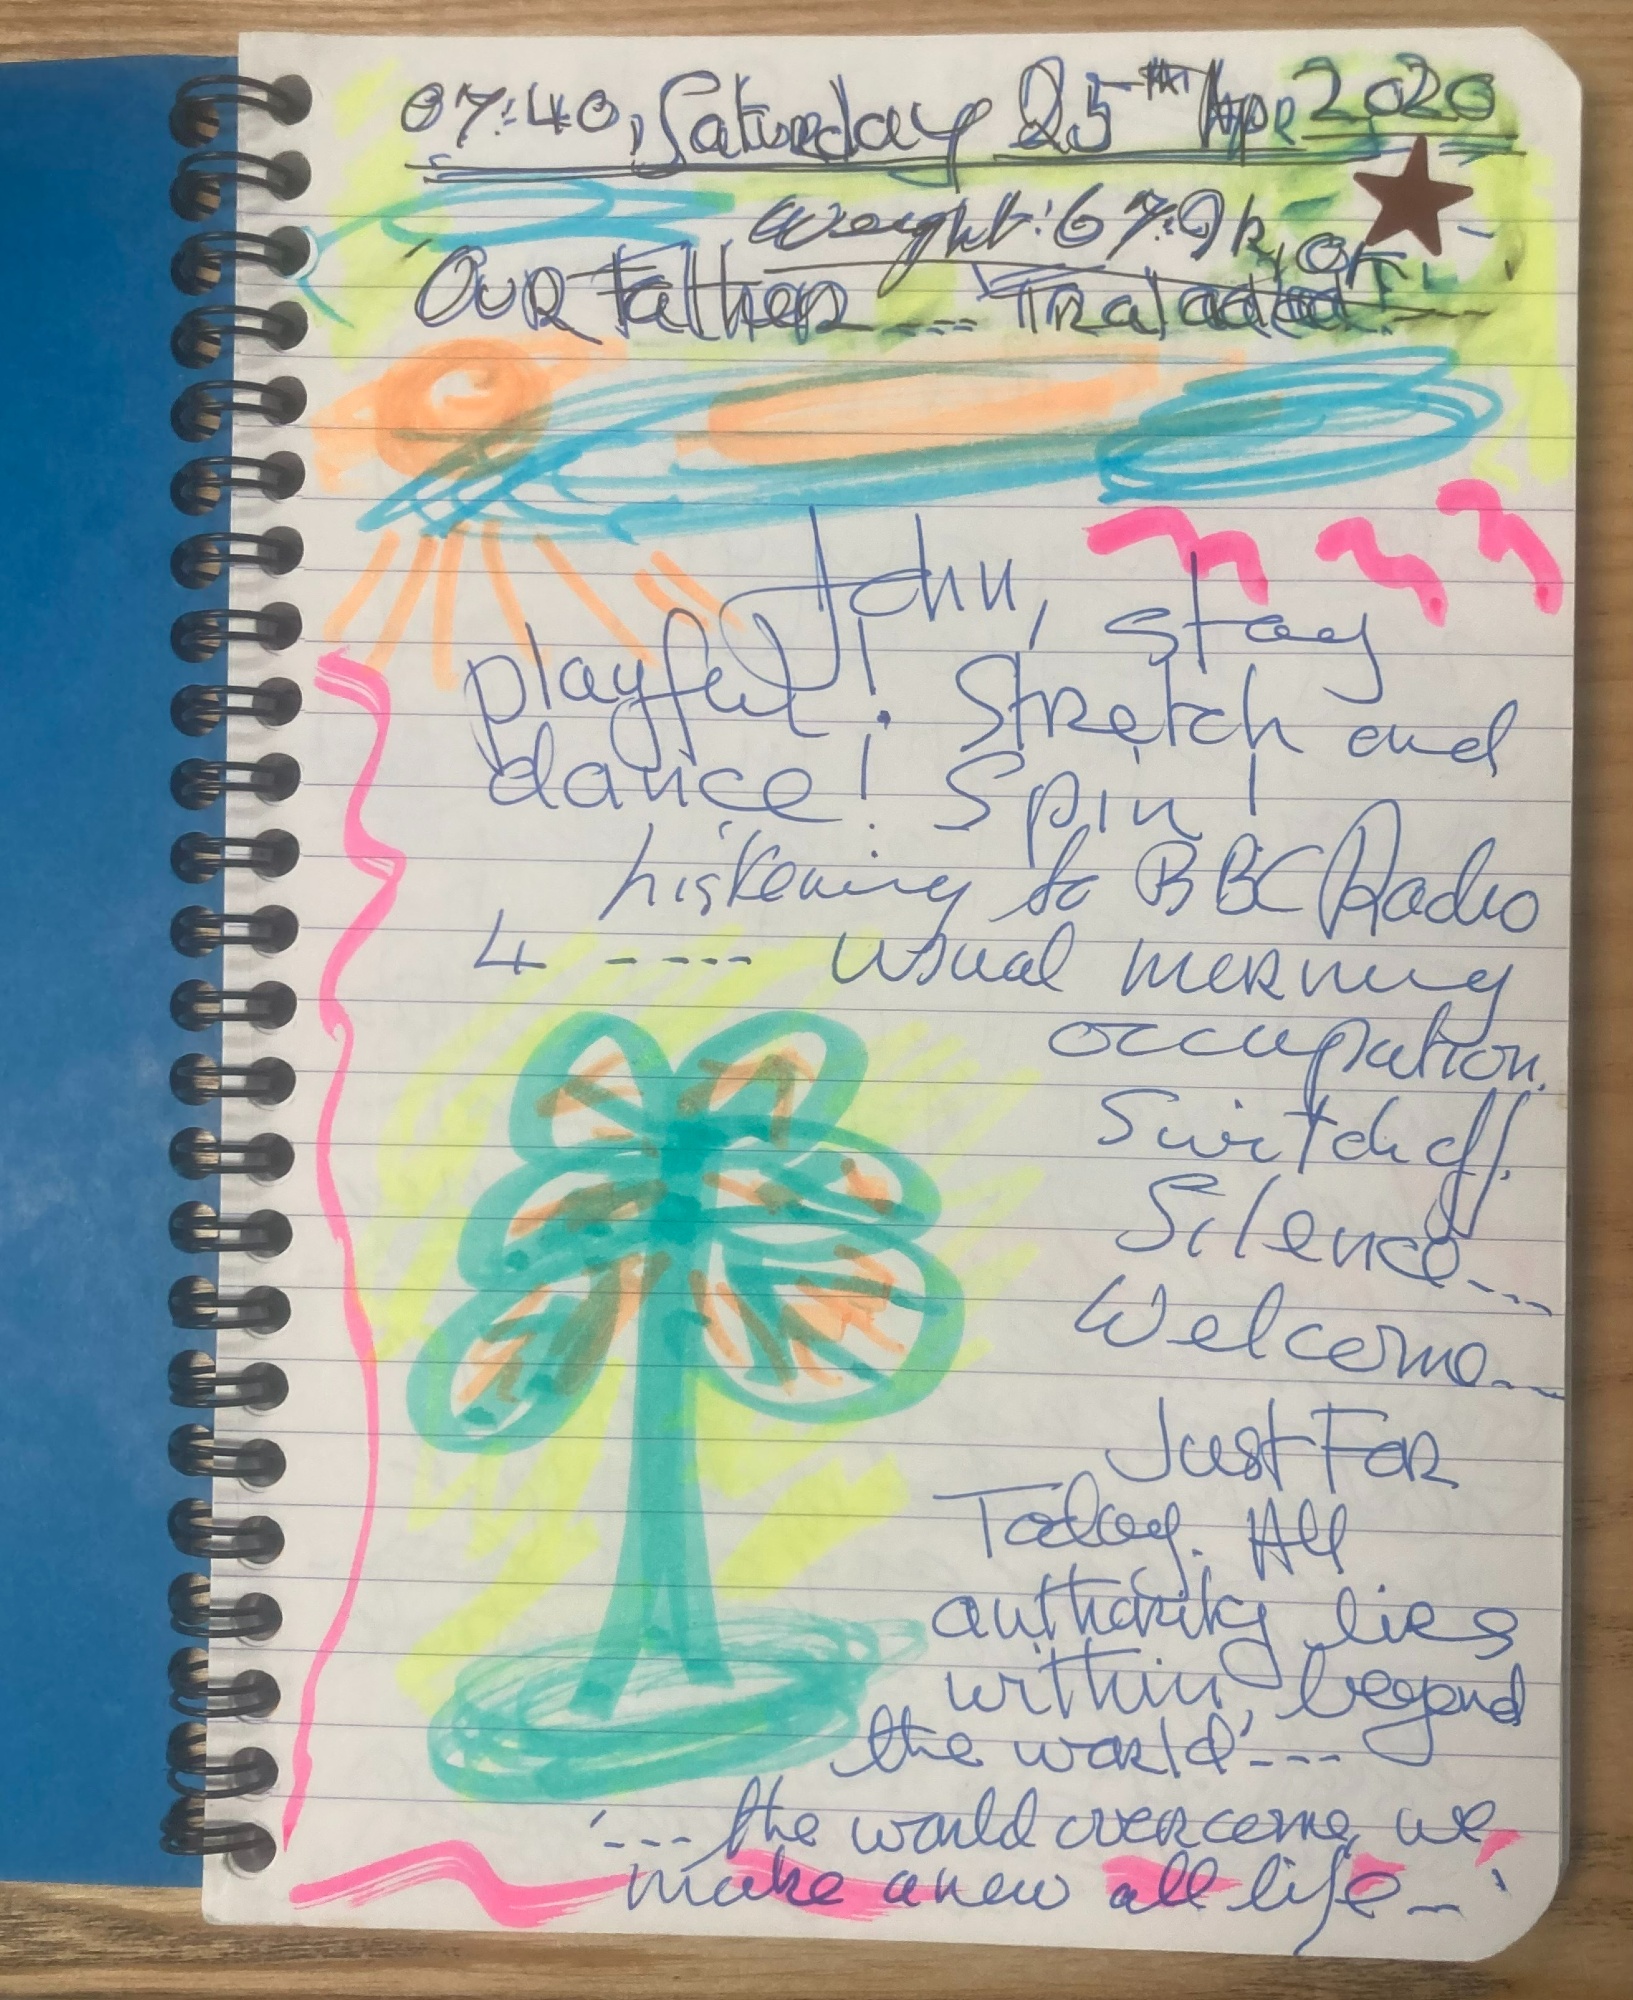 07:40, Saturday 25TH Apr 2020
Weight: 67.9k, OK
'Our Father ---- Tralaalaa! ---
John, stay
playful! Stretch and
dance! Spin!
Listening to BBC Radio
4 ---- usual morning
occupation.
Switch off.
Silence---
Welcome---
Just For
Today. All
authority lies
within, beyond
the world'---
'--- the world overcome, we
make anew all life--'